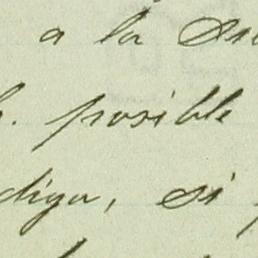 a la
posible
diga, si